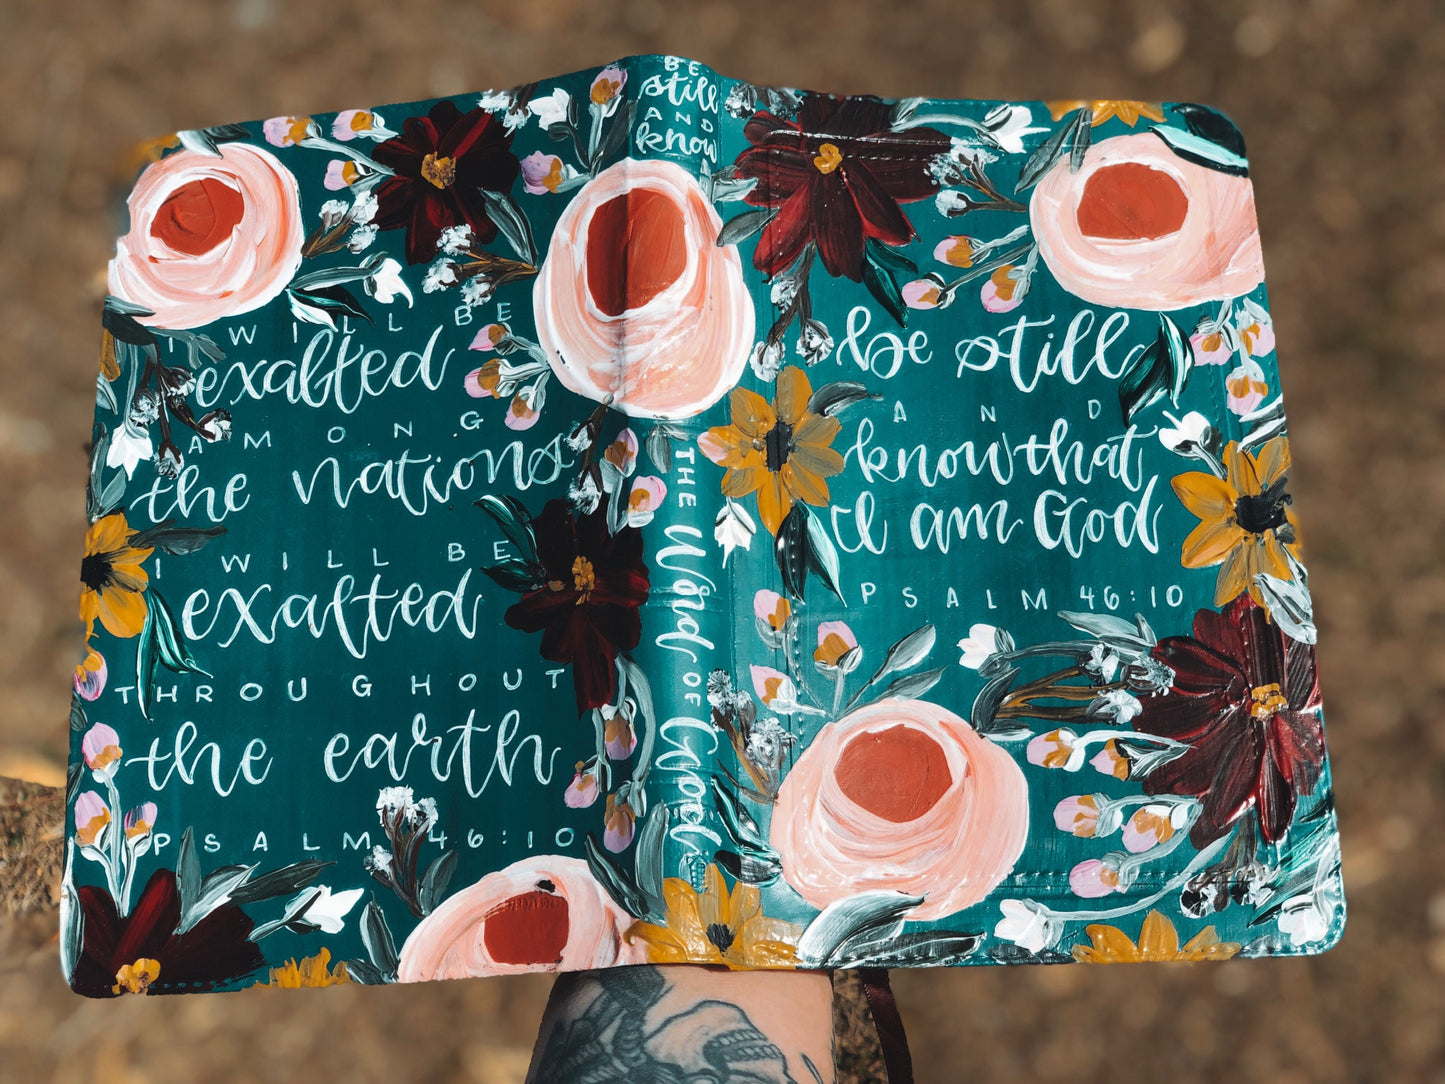 I WILL BE
exalted
AMONG
the nations
I WILL BE
exalted
THROUGHOUT
the earth
PSALM 46:10
BE
still
AND
know
THE Word OF God
be still
AND
know that
I am God
PSALM 46:10